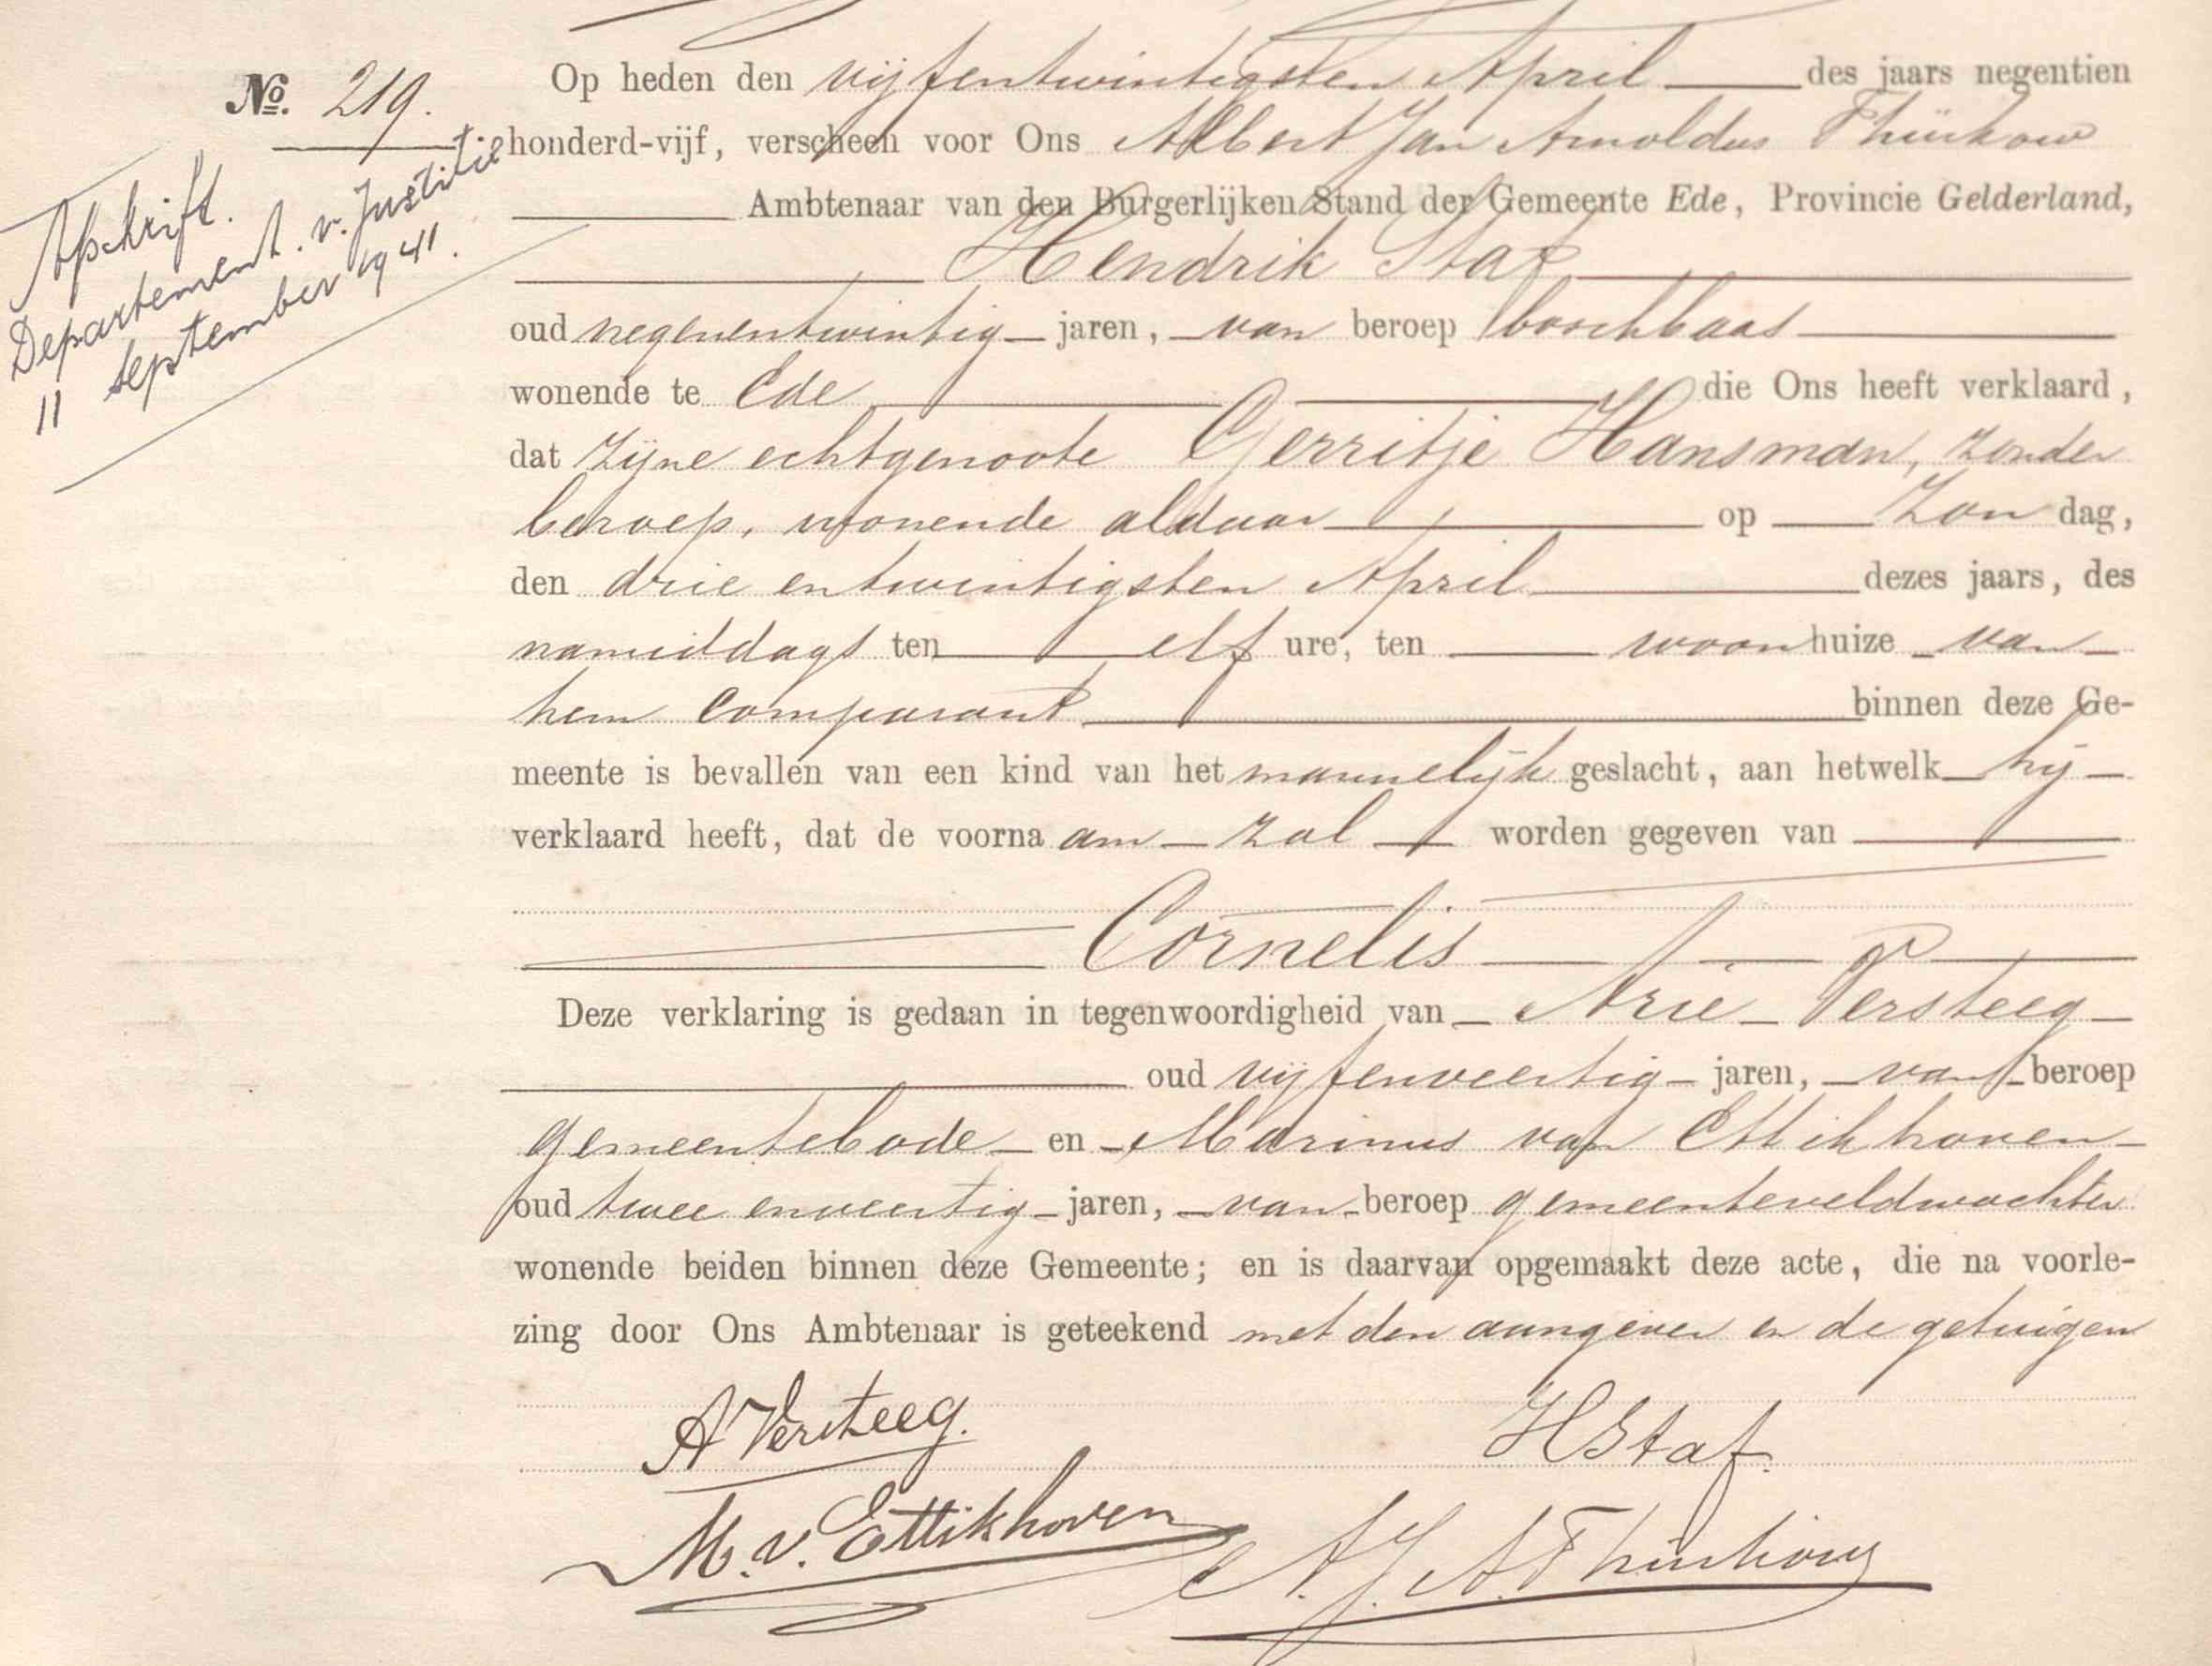 No. 219.
Afschrift.
Departement. v. Justitie
11 September 1941.
Op heden den vijfentwintigsten April des jaars negentien
honderd-vijf, verscheen voor Ons Albert Jan Arnoldus Thürkow
Ambtenaar van den Burgerlijken Stand der Gemeente Ede, Provincie Gelderland,
Hendrik Staf
oud negenentwintig jaren, van beroep boschbaas
wonende te Ede die Ons heeft verklaard,
dat zijne echtgenoote Gerritje Hansman, zonder
beroep, wonende aldaar op Zon dag,
den drie entwintigsten April dezes jaars, des
namiddags ten elf ure, ten woon huize van
hem comparant binnen deze Ge-
meente is bevallen van een kind van het mannelijk geslacht, aan hetwelk hij
verklaard heeft, dat de voorna am zal worden gegeven van
Cornelis
Deze verklaring is gedaan in tegenwoordigheid van Arie Versteeg
oud vijfenveertig jaren, van beroep
gemeentebode en Marinus van Ettikhoven
oud twee enveertig jaren, van beroep gemeenteveldwachter
wonende beiden binnen deze Gemeente; en is daarvan opgemaakt deze acte, die na voorle-
zing door Ons Ambtenaar is geteekend met den aangever en de getuigen
A Versteeg. HStaf.
M. v. Ettikhoven A. J. A. Thürkow